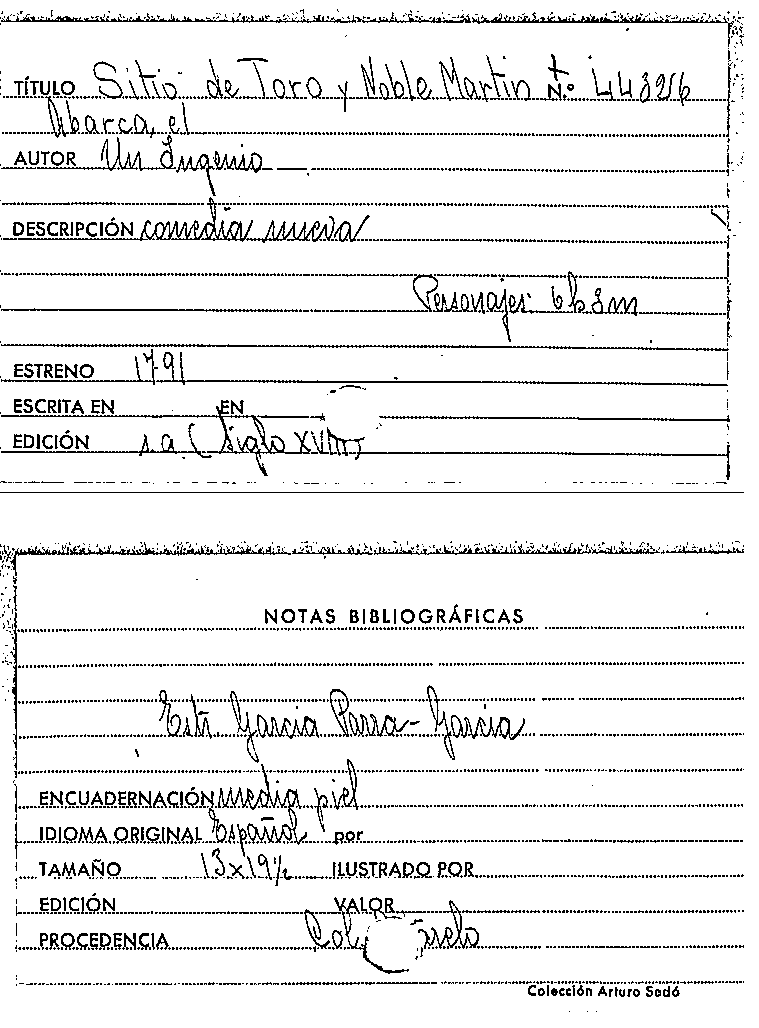 TÍTULO Sitio de Toro y Noble Martin N.º 443256
Abarca, el
AUTOR Un Ingenio
DESCRIPCIÓN comedia nueva
Personajes: 6h 3m
ESTRENO 1791
ESCRITA EN EN
EDICIÓN s.a. (Siglo XVIII)
NOTAS BIBLIOGRÁFICAS
Estr. Garcia Parra - Garcia
ENCUADERNACIÓN media piel
IDIOMA ORIGINAL Español por
TAMAÑO 13x19½ ILUSTRADO POR
EDICIÓN VALOR
PROCEDENCIA
Colección Arturo Sedó